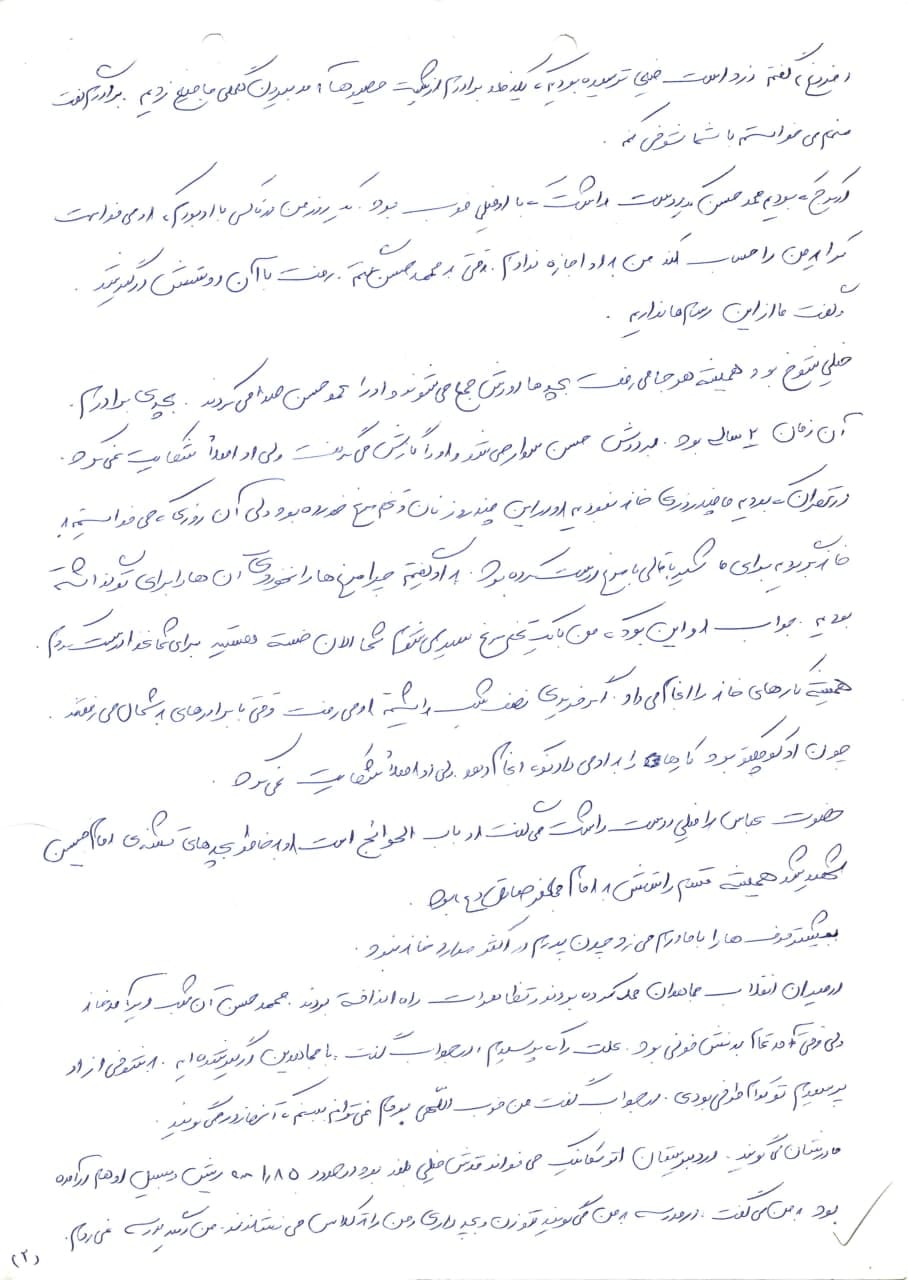 افروغ، گفتم دزد است خیلی ترسیده بودیم که یکدفعه برادرم از پشت حصیرها آمد بیرون گفتی ما جیغ زدیم. برادرم گفت
منم می خواستم با شما شوخی کنم.
کرج که بودیم محمد حسن یک دوست داشت که با او خیلی خوب بود. یک روز من در تاکسی با او بودم که او می خواست
کرایه من را حساب کند من به او اجازه ندادم. وقتی به محمد حسن گفتم. رفت با آن دوستش درگیر شد.
و گفت ما از این رسم ها نداریم.
خیلی شوخ بود همیشه هر جا می رفت بچه ها دورش جمع می شوند و او را عمو حسن صدا می کردند. بچه ی برادرم.
آن زمان ۲ ساله بود. بر دوش حسن سوار می شد و او را گازش می گرفت ولی او اصلاً شکایت نمی کرد.
در تهران که بودیم ما چند روزی خانه نبودیم او در این چند روز نان و تخم مرغ خورده بود ولی آن روزی که می خواستیم به
خانه برویم برای ما شوید باقالی با مرغ درست کرده بود. به او گفتم چرا مرغ ها را نخوردی آن ها را برای تو گذاشته
بودیم. جواب او این بود که من با یک تخم مرغ سیر می شوم شما الان خسته هستید برای شما غذا درست کردم.
همیشه کارهای خانه را انجام می داد. اگر خریدی نصف شب داشتیم او می رفت وقتی با برادرهای به شمال می رفتند.
چون او کوچکتر بود کارها را به او می دادند که انجام دهد ولی او اصلاً شکایت نمی کرد.
حضرت عباس را خیلی دوست داشت می گفت او باب الحوائج است او به خاطر بچه های تشنه ی امام حسین
شهید شد همیشه قسم راستش به امام جعفر صادق (ع) بود.
بیشتر حرف ها را با مادرم می زد چون پدرم در اکثر موارد خانه نبود.
در میدان انقلاب مجاهدان حمله کرده بودند و تظاهرات راه انداخته بودند. محمد حسن آن شب دیر آمد خانه
ولی وقتی آمد تمام بدنش خونی بود. علت را که پرسیدم، در جواب گفت: با مجاهدین درگیر شده ایم. به شوخی از او
پرسیدم تو کدام طرفی بودی. در جواب گفت من حزب اللّهی بودم نمی توانم ببینم که آنها زور می گویند.
مادرشان می گویند. در دبیرستان اتومکانیک می خواند قدش خیلی بلند بود در حدود ۱،۸۵ بود ریش و سبیل او هم درآمده
بود به من می گفت: در مدرسه به من می گویند تو زن و بچه داری و من را ته کلاس می نشانند. من دیگر مدرسه نمی روم.
(۲)